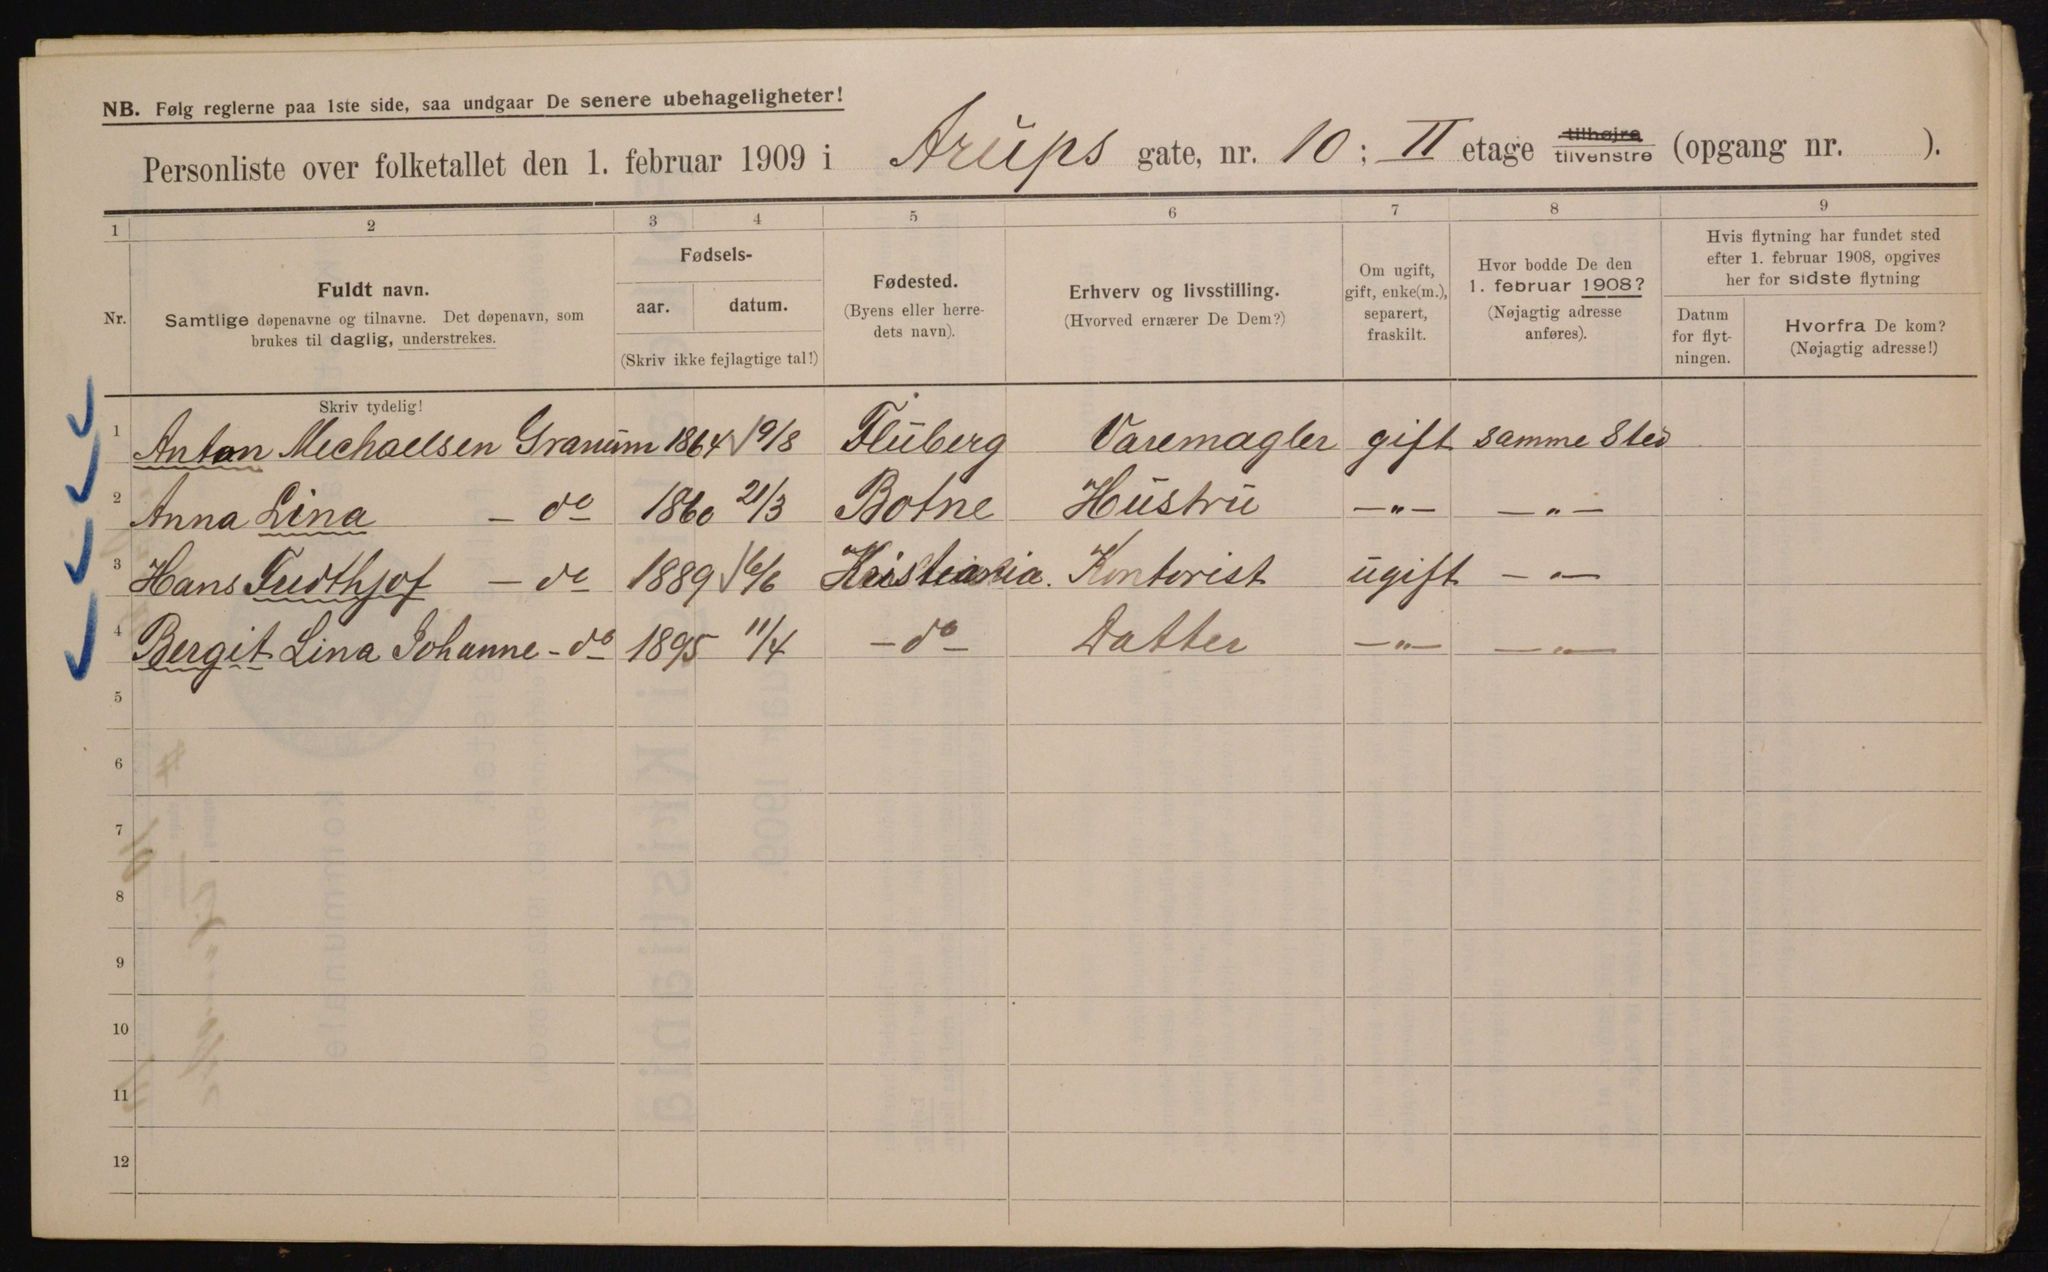 NB. Følg reglerne paa 1ste side, saa undgaar De senere ubehageligheter!
Personliste over folketallet den 1. februar 1909 i Arups gate, nr. 10; II etage tilhøjre tilvenstre (opgang nr. ).
1 2 3 4 5 6 7 8 9
Nr.
Fuldt navn.
Samtlige døpenavne og tilnavne. Det døpenavn, som
brukes til daglig, understrekes.
Fødsels-
aar. datum.
(Skriv ikke fejlagtige tal!)
Fødested.
(Byens eller herre-
dets navn).
Erhverv og livsstilling.
(Hvorved ernærer De Dem?)
Om ugift,
gift, enke(m.),
separert,
fraskilt.
Hvor bodde De den
1. februar 1908?
(Nøjagtig adresse
anføres).
Hvis flytning har fundet sted
efter 1. februar 1908, opgives
her for sidste flytning
Datum
for flyt-
ningen.
Hvorfra De kom?
(Nøjagtig adresse!)
Skriv tydelig!
1 Anton Mechaelsen Granum 1864 19/8 Fluberg Varemagler gift samme Sted
2 Anna Lina - do 1860 21/3 Botne Hustru -"- -"-
3 Hans Fridthjof - do 1889 16/6 Kristiania. Kontorist ugift -"-
4 Bergit Lina Johanne - do 1895 11/4 - do - Datter -"- -"-
5
6
7
8
9
10
11
12